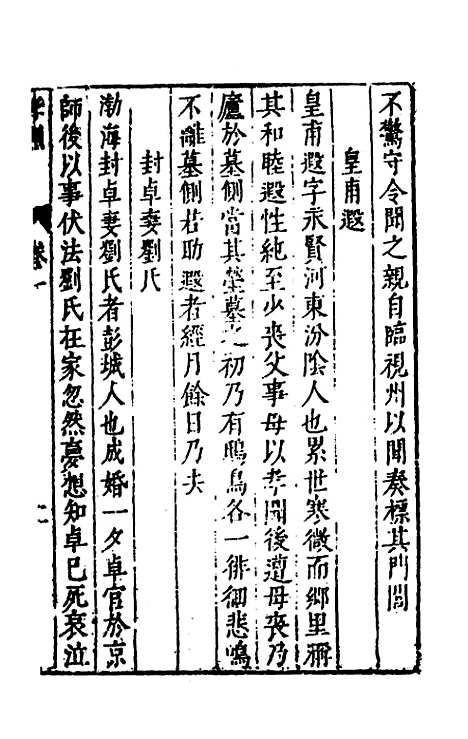 不驚守令聞之親自臨視州以聞奏標其門閭
皇甫遐
皇甫遐字永賢河東汾陰人也累世寒微而鄉里稱
其和睦遐性純至少喪父事母以孝聞後遭母喪乃
廬於墓側當其塋墓之初乃有鴟鳥各一徘徊悲鳴
不離墓側若助遐者經月餘日乃去
封卓妻劉氏
渤海封卓妻劉氏者彭城人也成婚一夕卓官於京
師後以事伏法劉氏在家忽然夢想知卓已死哀泣
卷一
二